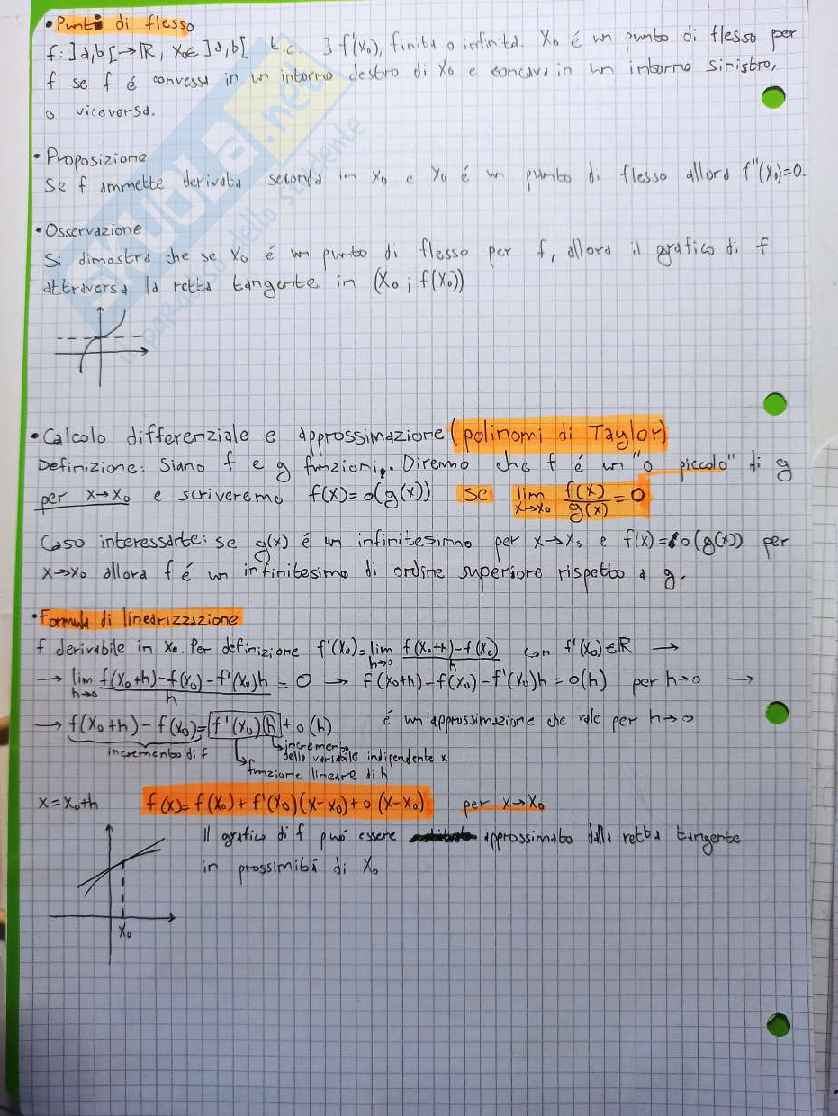 • Punti di flesso
f: ]a,b[ → ℝ, x₀∈ ]a,b[ t.c. ∃ f'(x₀), finita o infinita. x₀ é un punto di flesso per
f se f é convessa in un intorno destro di x₀ e concava in un intorno sinistro,
o viceversa.
• Proposizione
Se f ammette derivata seconda in x₀ e x₀ é un punto di flesso allora f''(x₀)=0.
• Osservazione
Si dimostra che se x₀ é un punto di flesso per f, allora il grafico di f
attraversa la retta tangente in (x₀; f(x₀))
• Calcolo differenziale e approssimazione (polinomi di Taylor)
Definizione: Siano f e g funzioni. Diremo che f é un "o piccolo" di g
per x→x₀ e scriveremo f(x)=o(g(x)) se lim x→x₀ f(x)/g(x) = 0
Caso interessante: se g(x) é un infinitesimo per x→x₀ e f(x)=o(g(x)) per
x→x₀ allora f é un infinitesimo di ordine superiore rispetto a g.
• Formula di linearizzazione
f derivabile in x₀. Per definizione f'(x₀)=lim h→0 f(x₀+h)-f(x₀)/h con f'(x₀)∈ℝ →
→ lim h→0 f(x₀+h)-f(x₀)-f'(x₀)h/h = 0 → f(x₀+h)-f(x₀)-f'(x₀)h=o(h) per h→0 →
→ f(x₀+h)-f(x₀)=f'(x₀)(h)+o(h) é un approssimazione che vale per h→0
incremento di f
incremento
della variabile indipendente x
funzione lineare di h
x=x₀+h f(x)=f(x₀)+f'(x₀)(x-x₀)+o(x-x₀) per x→x₀
Il grafico di f può essere approssimato dalla retta tangente
in prossimità di x₀
x₀
SKUOLA.net
dello studente